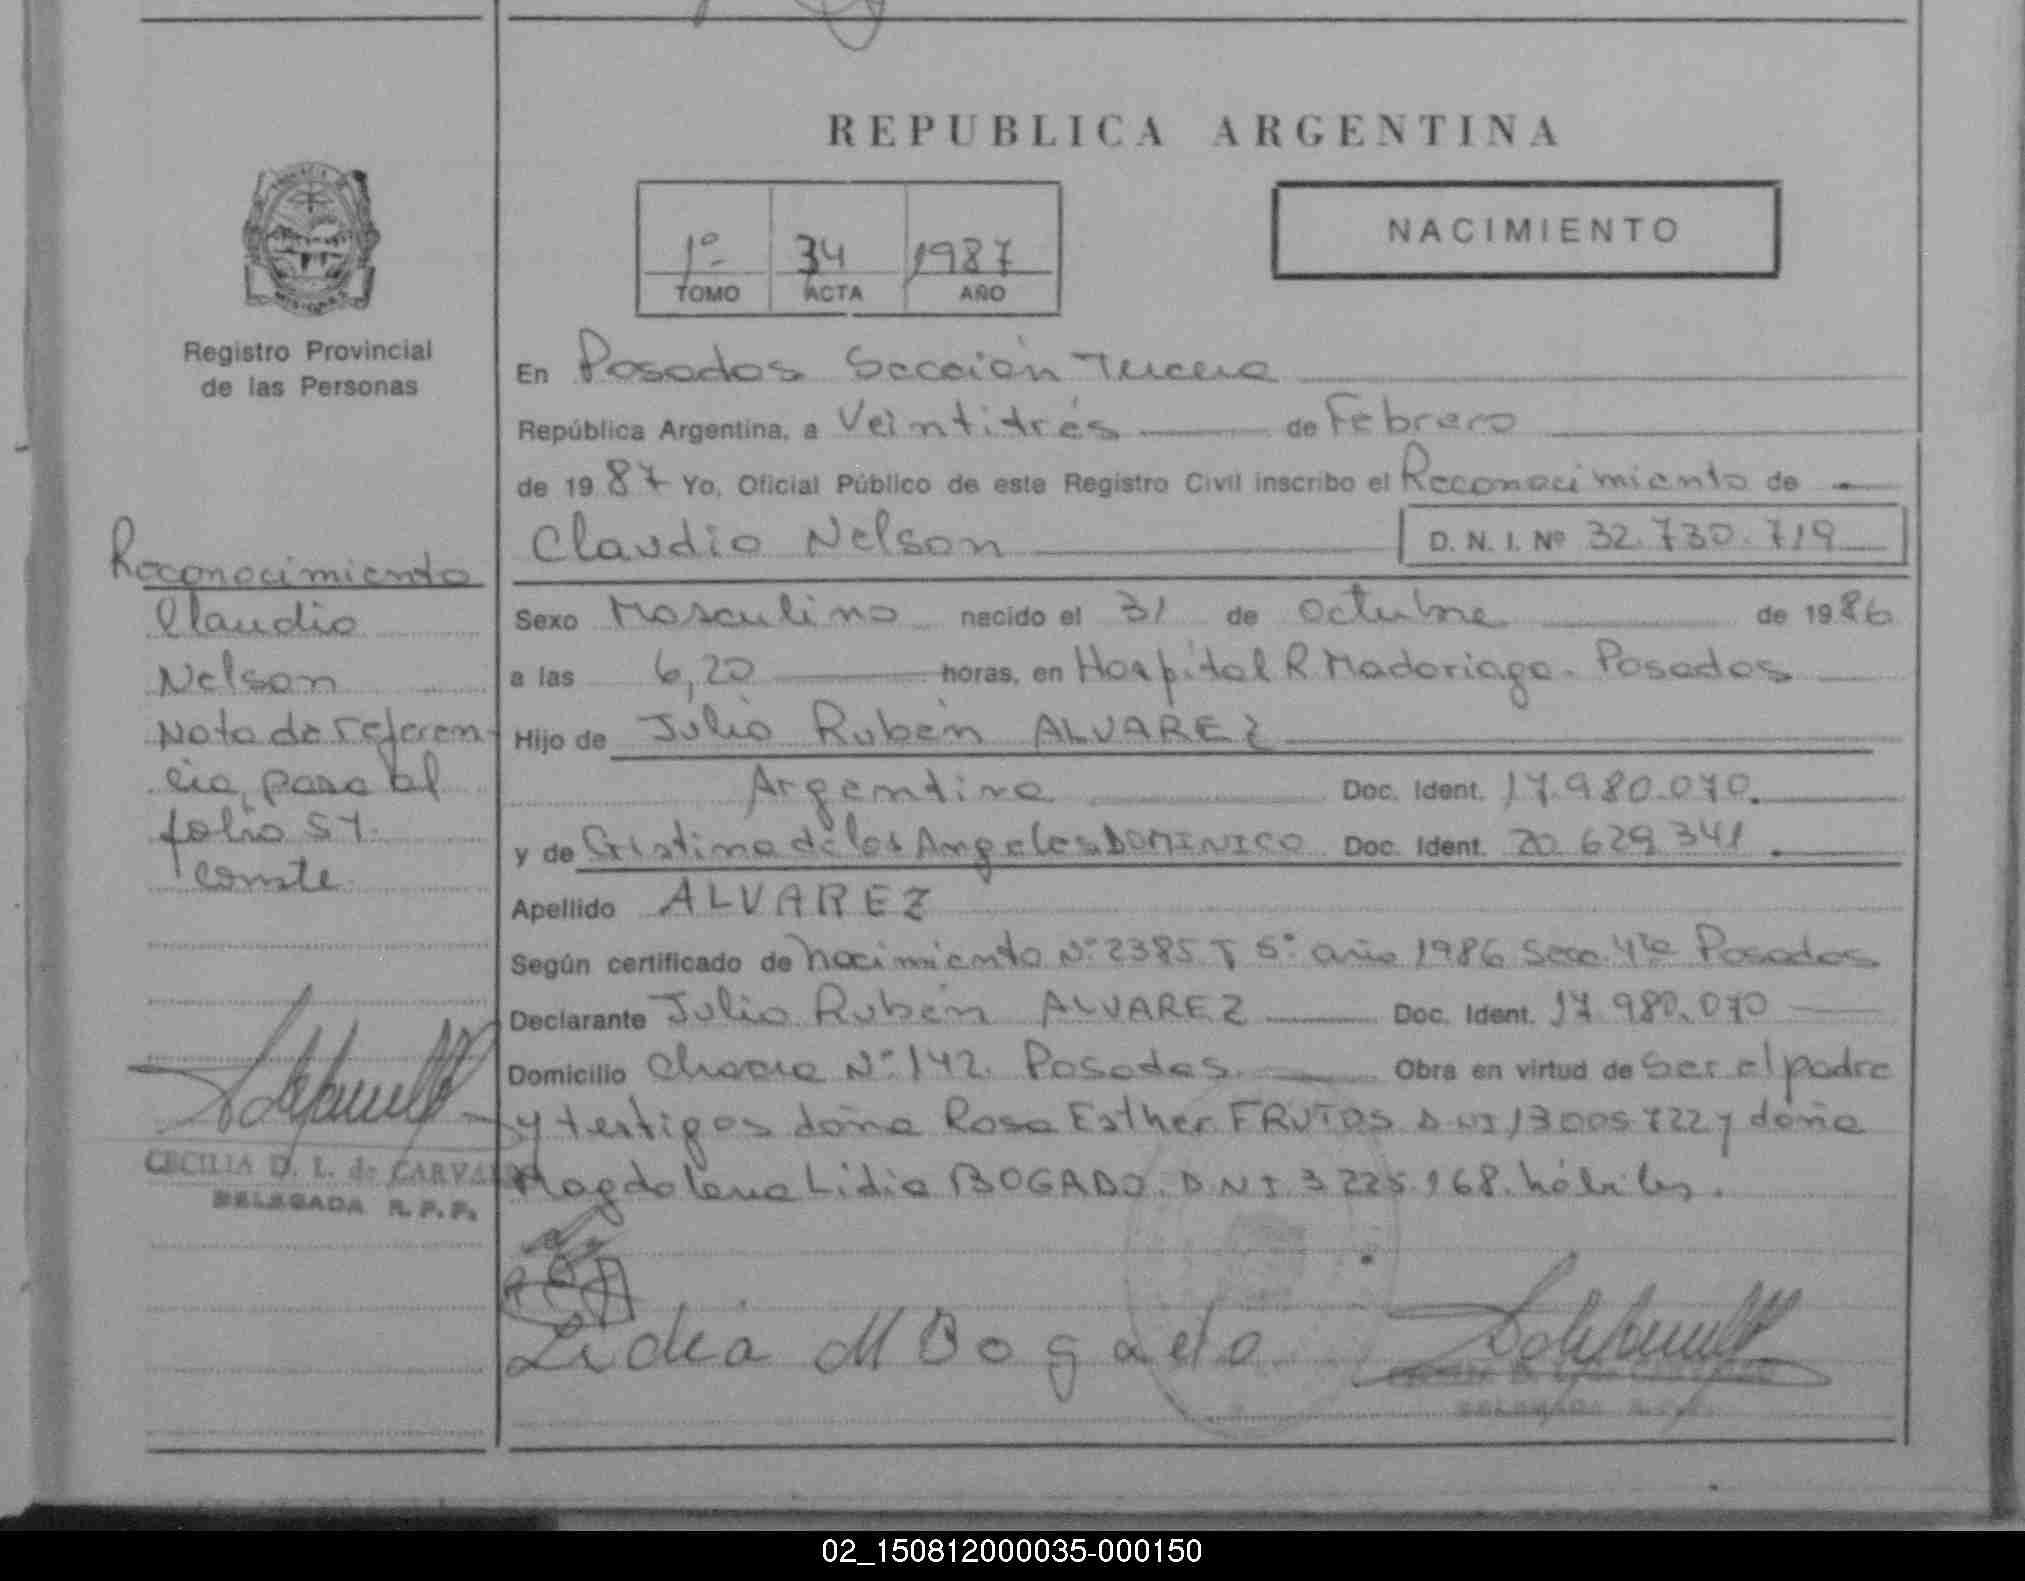 REPUBLICA ARGENTINA
NACIMIENTO
1º 34 1987
TOMO ACTA AÑO
Registro Provincial
de las Personas
En Posadas Sección Tercera
República Argentina, a Veintitrés de Febrero
de 1987 Yo, Oficial Público de este Registro Civil inscribo el Reconocimiento de
Claudio Nelson D. N. I. Nº 32.730.719
Sexo Masculino nacido el 31 de octubre de 1986
a las 6,20 horas, en Hospital R. Madariaga. Posadas
Hijo de Julio Rubén ALVAREZ
Argentina Doc. Ident. 17.980.070.
y de Cristina de los Angeles DOMINICO Doc. Ident. 20.629.341.
Apellido ALVAREZ
Según certificado de nacimiento Nº 2385 T 5º año 1986 Secc. 4ta Posadas
Declarante Julio Rubén ALVAREZ Doc. Ident. 17.980.070
Domicilio Chacra Nº 142. Posadas Obra en virtud de ser el padre
y testigos doña Rosa Esther FRUTOS DNI 13005722 y doña
Magdalena Lidia BOGADO. DNI 3.225.168. hábiles.
Lidia M Bogado
Reconocimiento
Claudio
Nelson
Nota de referen-
cia, pasa al
folio 57.
conste.
CECILIA D. L. de CARVA
DELEGADA R.P.P.
DELEGADA R.P.P.
02_150812000035-000150